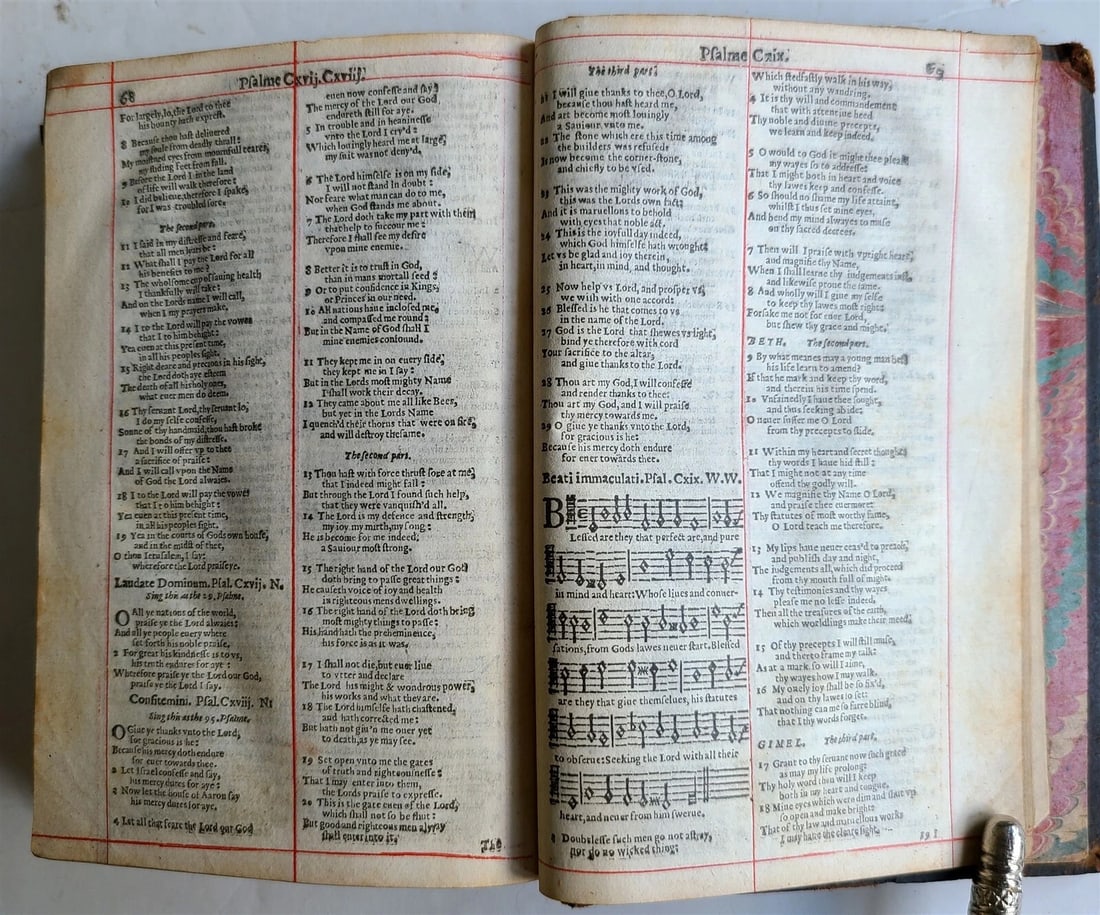 68
Psalme Cxvij. Cxviij.
For largely, lo, the Lord to thee
his bounty hath exprest.
8 Because thou hast delivered
my soule from deadly thrall:
My moistned eyes from mournfull teares,
my sliding feet from fall.
9 Before the Lord I in the land
of life will walk therefore:
10 I did believe, therefore I spake,
for I was troubled sore.
The second part.
11 I said in my distresse and feare,
that all men lyars be:
12 What shall I pay the Lord for all
his benefits to me?
13 The wholsome cup of sauing health
I thankfully will take:
And on the Lords name I will call,
when I my prayers make.
14 I to the Lord will pay the vowes
that I to him behight:
Yea euen at this present time,
in all his peoples sight.
15 Right deare and precious in his sight,
the Lord doth aye esteem
The death of all his holy ones,
what euer men do deem.
16 Thy seruant Lord, thy seruant lo,
I do my selfe confesse,
Sonne of thy handmaid, thou hast broke
the bonds of my distresse.
17 And I will offer vp to thee
a sacrifice of praise:
And I will call vpon the Name
of God the Lord alwaies.
18 I to the Lord will pay the vowes
that I to him behight:
Yea euen at this present time,
in all his peoples sight.
19 Yea in the courts of Gods own house,
and in the midst of thee,
O thou Ierusalem, I say:
wherefore the Lord praise ye.
Laudate Dominum. Psal. Cxvij. N.
Sing this as the 29. Psalme.
O All ye nations of the world,
praise ye the Lord alwaies:
And all ye people euery where
set forth his noble praise,
2 For great his kindnesse is to vs,
his truth endures for aye:
Wherefore praise ye the Lord our God,
praise ye the Lord I say.
Confitemini. Psal. Cxviij. N
Sing this as the 95. Psalme.
O Giue ye thanks vnto the Lord,
for gracious is he:
Because his mercy doth endure
for euer towards thee.
2 Let Israel confesse and say,
his mercy dures for aye:
3 Now let the house of Aaron say
his mercy dures for aye.
4 Let all that feare the Lord our God
euen now confesse and say,
The mercy of the Lord our God,
endureth still for aye.
5 In trouble and in heauinesse
vnto the Lord I cry'd:
Which louingly heard me at large,
my suit was not deny'd,
6 The Lord himselfe is on my side,
I will not stand in doubt:
Nor feare what man can do to me,
when God stands me about.
7 The Lord doth take my part with them
that help to succour me:
Therefore I shall see my desire
vpon mine enemie.
8 Better it is to trust in God,
than in mans mortall seed:
9 Or to put confidence in Kings,
or Princes in our need.
10 All nations haue inclosed me,
and compassed me round:
But in the Name of God shall I
mine enemies confound.
11 They kept me in on euery side,
they kept me in I say:
But in the Lords most mighty Name
I shall work their decay.
12 They came about me all like Bees,
but yet in the Lords Name
I quench'd their thorns that were on fire,
and will destroy the same.
The second part.
13 Thou hast with force thrust sore at me,
that I indeed might fall:
But through the Lord I found such help,
that they were vanquish'd all.
14 The Lord is my defence and strength,
my ioy, my mirth, my song:
He is become for me indeed,
a Sauiour most strong.
15 The right hand of the Lord our God
doth bring to passe great things:
He causeth voice of ioy and health
in righteous mens dwellings.
16 The right hand of the Lord doth bring
most mighty things to passe:
His hand hath the preheminence,
his force is as it was.
17 I shall not die, but euer liue
to vtter and declare
The Lord his might & wondrous power,
his works and what they are.
18 The Lord himselfe hath chastened,
and hath corrected me:
But hath not giu'n me ouer yet
to death, as ye may see.
19 Set open vnto me the gates
of truth and righteousnesse:
That I may enter into them,
the Lords praise to expresse.
20 This is the gate euen of the Lord,
which shall not so be shut:
But good and righteous men alway
shall enter into it.
Psalme Cxix.
The third part.
21 I will giue thanks to thee, O Lord,
because thou hast heard me,
And art become most louingly
a Sauiour vnto me.
22 The stone which ere this time among
the builders was refused:
Is now become the corner-stone,
and chiefly to be vsed.
23 This was the mighty work of God,
this was the Lords own fact:
And it is maruellous to behold
with eyes that noble act.
24 This is the ioyfull day indeed,
which God himselfe hath wrought:
Let vs be glad and ioy therein,
in heart, in mind, and thought.
25 Now help vs Lord, and prosper vs,
we wish with one accord:
26 Blessed is he that comes to vs
in the name of the Lord.
27 God is the Lord that shewes vs light,
bind ye therefore with cord
Your sacrifice to the altar,
and giue thanks to the Lord.
28 Thou art my God, I will confesse
and render thanks to thee:
Thou art my God, and I will praise
thy mercy towards me.
29 O giue ye thanks vnto the Lord,
for gracious is he:
Because his mercy doth endure
for euer towards thee.
Beati immaculati. Psal. Cxix. W.W.
BLessed are they that perfect are, and pure
in mind and heart: Whose liues and conuer-
sations, from Gods lawes neuer start. Blessed
are they that giue themselues, his statutes
to obserue: Seeking the Lord with all their
heart, and neuer from him swerue.
3 Doubtlesse such men go not astray,
nor do no wicked thing:
Which stedfastly walk in his way,
without any wandring.
4 It is thy will and commandement
that with attentiue heed
Thy noble and diuine precepts,
we learn and keep indeed.
5 O would to God it might thee please
my wayes so to addresse:
That I might both in heart and voice
thy lawes keep and confesse.
6 So should no shame my life attaine,
whilst I thus set mine eyes,
And bend my mind alwayes to muse
on thy sacred decrees.
7 Then will I praise with vpright heart,
and magnifie thy Name,
When I shall learne thy iudgements iust,
and likewise proue the same.
8 And wholly will I giue my selfe
to keep thy lawes most right:
Forsake me not for euer Lord,
but shew thy grace and might.
BETH. The second part.
9 By what meanes may a young man best
his life learn to amend?
If that he mark and keep thy word,
and therein his time spend.
10 Vnfainedly I haue thee sought,
and thus seeking abide:
O neuer suffer me O Lord
from thy precepts to slide.
11 Within my heart and secret thoughts
thy words I haue hid still:
That I might not at any time
offend thy godly will.
12 We magnifie thy Name O Lord,
and praise thee euermore:
Thy statutes of most worthy fame,
O Lord teach me therefore.
13 My lips haue neuer ceas'd to preach,
and publish day and night,
The iudgements all, which did proceed
from thy mouth full of might.
14 Thy testimonies and thy wayes
please me no lesse indeed,
Then all the treasures of the earth,
which worldlings make their meed.
15 Of thy precepts I will still muse,
and thereto frame my talk:
As at a mark so will I aime,
thy wayes how I may walk.
16 My onely ioy shall be so fix'd,
and on thy lawes so set:
That nothing can me so farre blind,
that I thy words forget.
GIMEL. The third part.
17 Grant to thy seruant now such grace
as may my life prolong:
Thy holy word then will I keep
both in my heart and tongue,
18 Mine eyes which were dim and shut vp
so open and make bright:
That of thy law and maruellous works
I may haue the cleare sight.